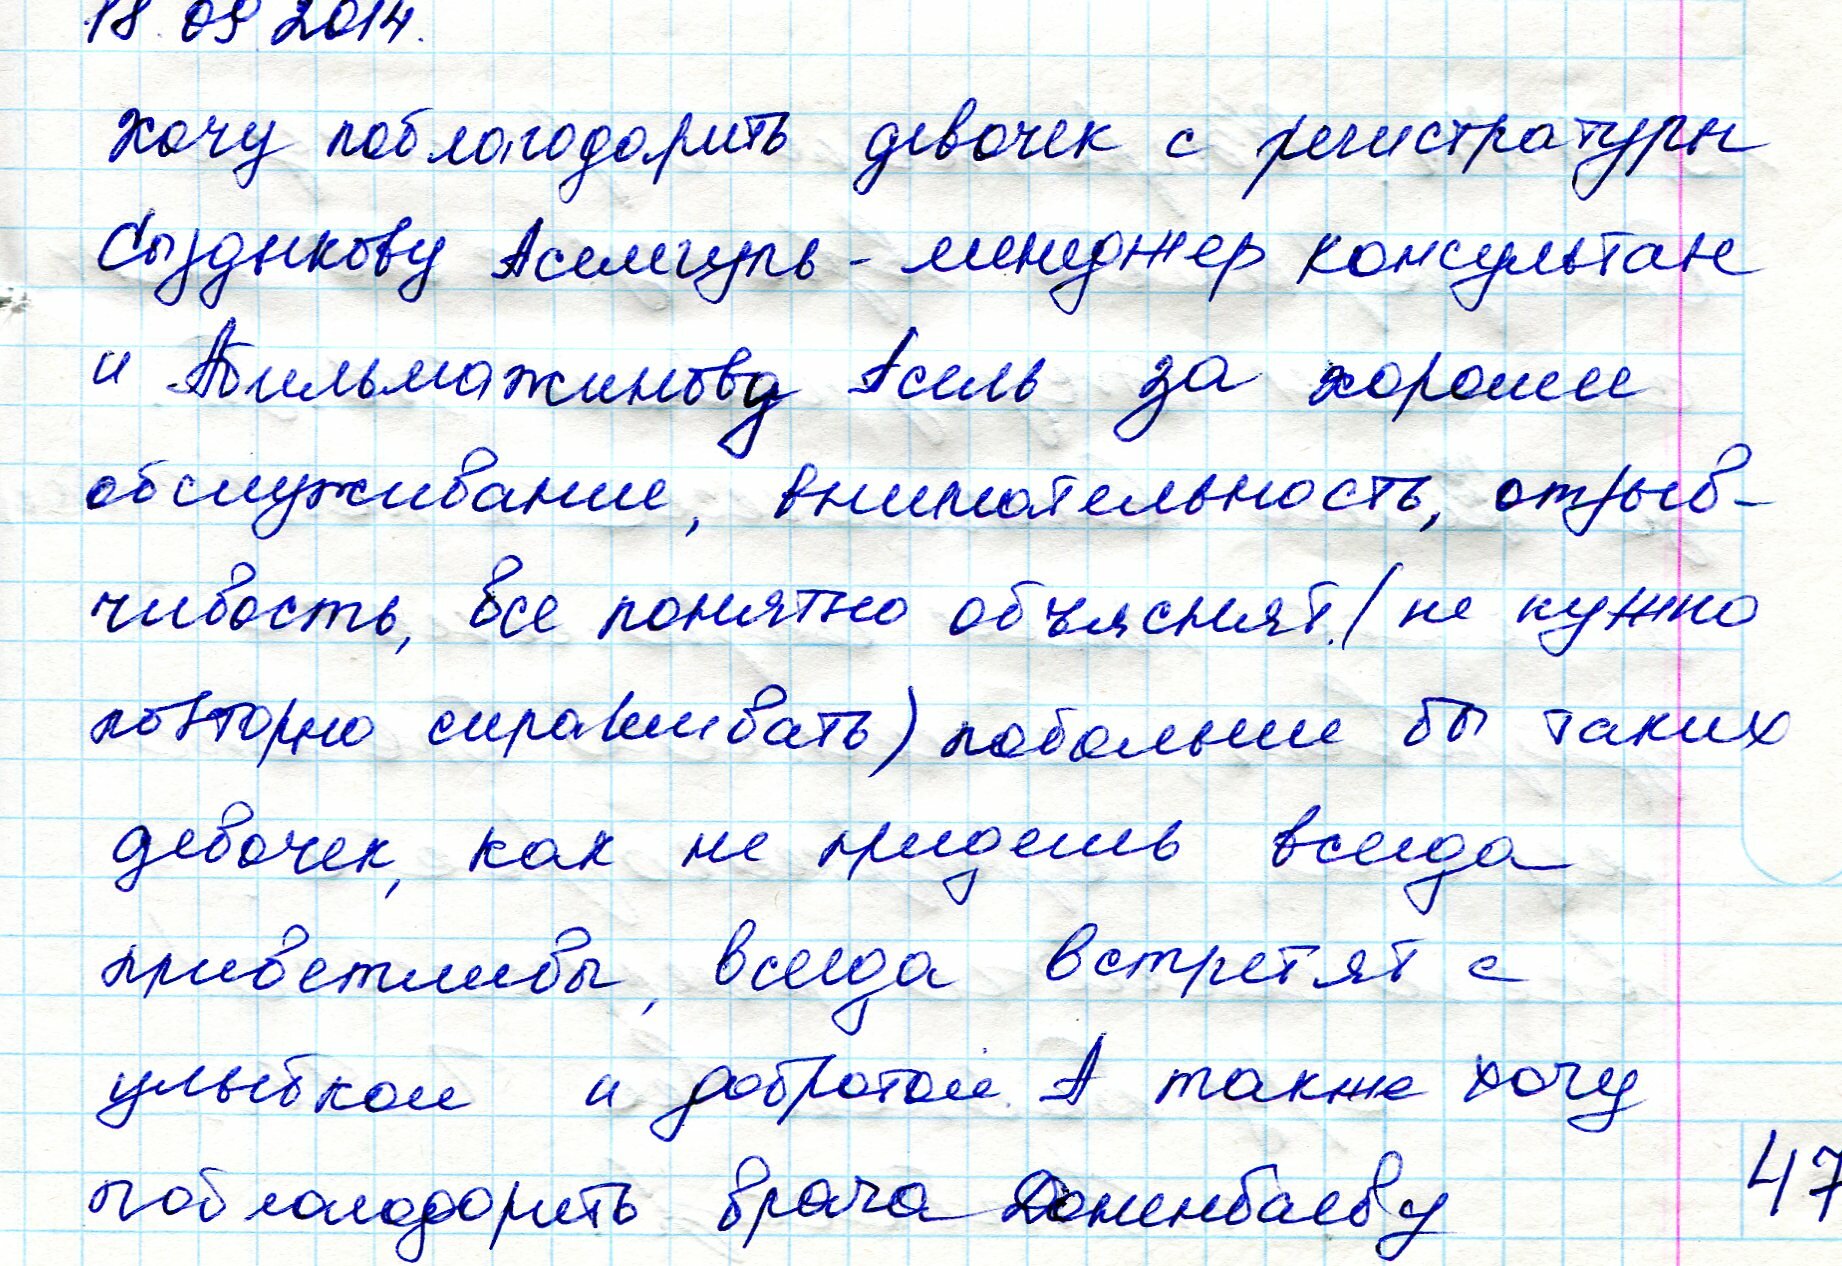 18.09.2014.
Хочу поблагодорить девочек с регистратуры
Сыздыкову Асемгуль - менеджер консультан
и Абильмажинову Асель за хорошее
обслуживание, внимательность, отзыв-
чивость, все понятно объяснят. (не нужно
повторно спрашивать) побольше бы таких
девочек, как не придешь всегда
приветливы, всегда встретят с
улыбкой и добротой. А также хочу
поблагодорить врача Доненбаеву
47